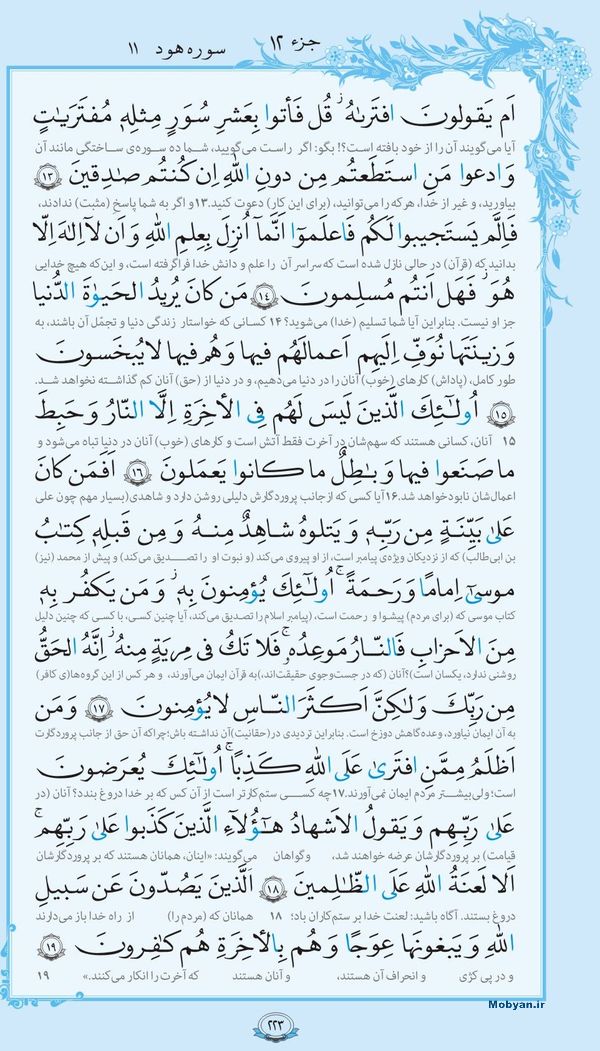 جزء ۱۲
سوره هود ۱۱
اَم يَقولونَ افتَرىٰهُ ۖ قُل فَأتوا بِعَشرِ سُوَرٍ مِثلِهِ مُفتَرَيٰتٍ
آیا می‌گویند آن را از خود بافته است؟! بگو: اگر راست می‌گویید، شما ده سوره‌ی ساختگی مانند آن
وَ ادعوا مَنِ استَطَعتُم مِن دونِ اللهِ اِن كُنتُم صٰدِقينَ ﴿۱۳﴾
بیاورید، و غیر از خدا، هرکه را می‌توانید، (برای این کار) دعوت کنید. ۱۳ و اگر به شما پاسخِ (مثبت) ندادند،
فَاِلَّم يَستَجيبوا لَكُم فَاعلَموٓا اَنَّمآ اُنزِلَ بِعِلمِ اللهِ وَ اَن لآ اِلٰهَ اِلّا
بدانید که (قرآن) در حالی نازل شده است که سراسر آن را علم و دانش خدا فراگرفته است، و این‌که هیچ خدایی
هُوَ ۖ فَهَل اَنتُم مُسلِمونَ ﴿۱٤﴾ مَن كانَ يُريدُ الحَيوٰةَ الدُّنيا
جز او نیست. بنابراین آیا شما تسلیم (خدا) می‌شوید؟ ۱۴ کسانی که خواستار زندگی دنیا و تجمّل آن باشند، به
وَ زينَتَها نُوَفِّ اِلَيهِم اَعمالَهُم فيها وَ هُم فيها لا يُبخَسونَ
طور کامل، (پاداش) کارهای (خوب) آنان را در دنیا می‌دهیم، و در دنیا از (حق) آنان کم گذاشته نخواهد شد.
﴿۱۵﴾ اُولٰٓئِكَ الَّذينَ لَيسَ لَهُم فِي الأٰخِرَةِ اِلَّا النّارُ وَ حَبِطَ
۱۵ آنان، کسانی هستند که سهم‌شان در آخرت فقط آتش است و کارهای (خوب) آنان در دنیا تباه می‌شود و
ما صَنَعوا فيها وَ بٰطِلٌ ما كانوا يَعمَلونَ ﴿۱۶﴾ اَفَمَن كانَ
اعمال‌شان نابود خواهد شد. ۱۶ آیا کسی که از جانب پروردگارش دلیلی روشن دارد و شاهدی (بسیار مهم چون علی
عَلىٰ بَيِّنَةٍ مِن رَبِّهِ وَ يَتلوهُ شاهِدٌ مِنهُ وَ مِن قَبلِهِ كِتٰبُ
بن ابی‌طالب) که از نزدیکان ویژه‌ی پیامبر است، از او پیروی می‌کند (و نبوت او را تصدیق می‌کند) و پیش از محمد (نیز)
موسىٰٓ اِمامًا وَ رَحمَةً ۚ اُولٰٓئِكَ يُؤمِنونَ بِهِ ۚ وَ مَن يَكفُر بِهِ
کتاب موسی که (برای مردم) پیشوا و رحمت است، (پیامبر اسلام را تصدیق می‌کند، آیا چنین کسی، با کسی که چنین دلیل
مِنَ الاَحزابِ فَالنّارُ مَوعِدُهُ ۚ فَلا تَكُ في مِريَةٍ مِنهُ ۚ اِنَّهُ الحَقُّ
روشنی ندارد، یکسان است؟) آنان (که در جست‌وجوی حقیقت‌اند،) به قرآن ایمان می‌آورند، و هر کس از این گروه‌ها(ی کافر)
مِن رَبِّكَ وَ لٰكِنَّ اَكثَرَ النّاسِ لا يُؤمِنونَ ﴿۱۷﴾ وَ مَن
به آن ایمان نیاورد، وعده‌گاهش دوزخ است. بنابراین تردیدی در (حقانیت) آن نداشته باش؛ چراکه آن حق از جانب پروردگارت
اَظلَمُ مِمَّنِ افتَرىٰ عَلَى اللهِ كَذِبًا ۚ اُولٰٓئِكَ يُعرَضونَ
است؛ ولی بیشتر مردم ایمان نمی‌آورند. ۱۷ چه کسی ستم‌کارتر است از آن کس که بر خدا دروغ بندد؟ آنان (در
عَلىٰ رَبِّهِم وَ يَقولُ الاَشهادُ هٰٓؤُلآءِ الَّذينَ كَذَبوا عَلىٰ رَبِّهِم ۚ
قیامت) بر پروردگارشان عرضه خواهند شد، و گواهان می‌گویند: «اینان، همانان هستند که بر پروردگارشان
اَلا لَعنَةُ اللهِ عَلَى الظّٰلِمينَ ﴿۱۸﴾ اَلَّذينَ يَصُدّونَ عَن سَبيلِ
دروغ بستند. آگاه باشید: لعنت خدا بر ستم‌کاران باد؛ ۱۸ همانان که (مردم را) از راه خدا باز می‌دارند
اللهِ وَ يَبغونَها عِوَجًا وَ هُم بِالأٰخِرَةِ هُم كٰفِرونَ ﴿۱۹﴾
و در پی کژی و انحراف آن هستند، و آنان هستند که آخرت را انکار می‌کنند.» ۱۹
۲۲۳
Mobyan.ir